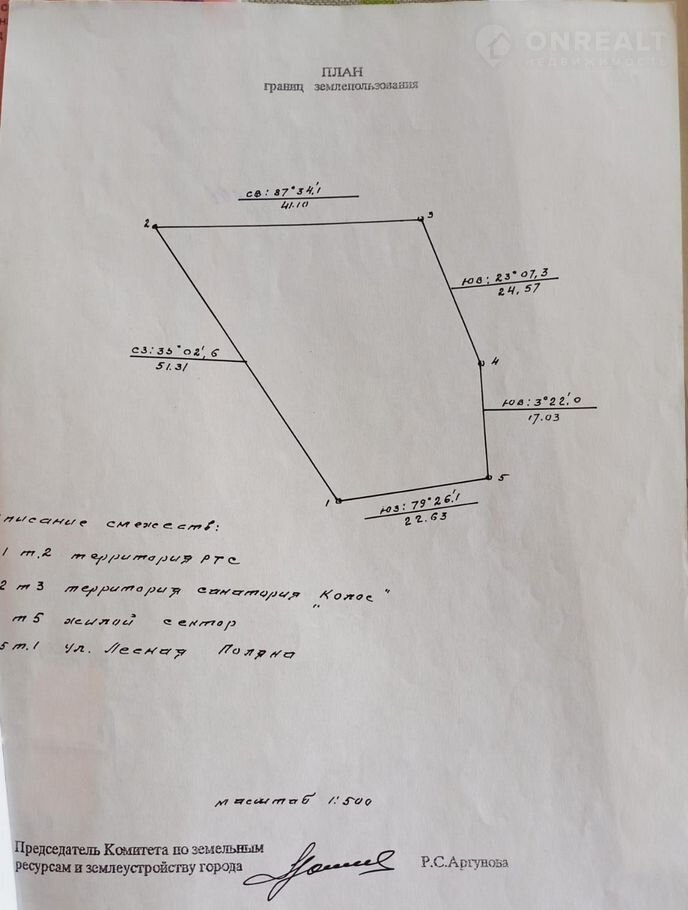 ONREALT
НЕДВИЖИМОСТЬ
ПЛАН
границ землепользования
СВ: 87°34,1'
41.10
2
3
ЮВ: 23°07,3
24,57
СЗ: 35°02',6
51.31
4
ЮВ: 3°22'.0
17.03
5
1
ЮЗ: 79°26'.1
22.63
писание смежеств:
1 т.2 территория РТС
2 т 3 территория санатория "Колос"
т 5 жилой сектор
5 т.1 ул. Лесная Поляна
масштаб 1:500
Председатель Комитета по земельным
ресурсам и землеустройству города
Р.С.Аргунова